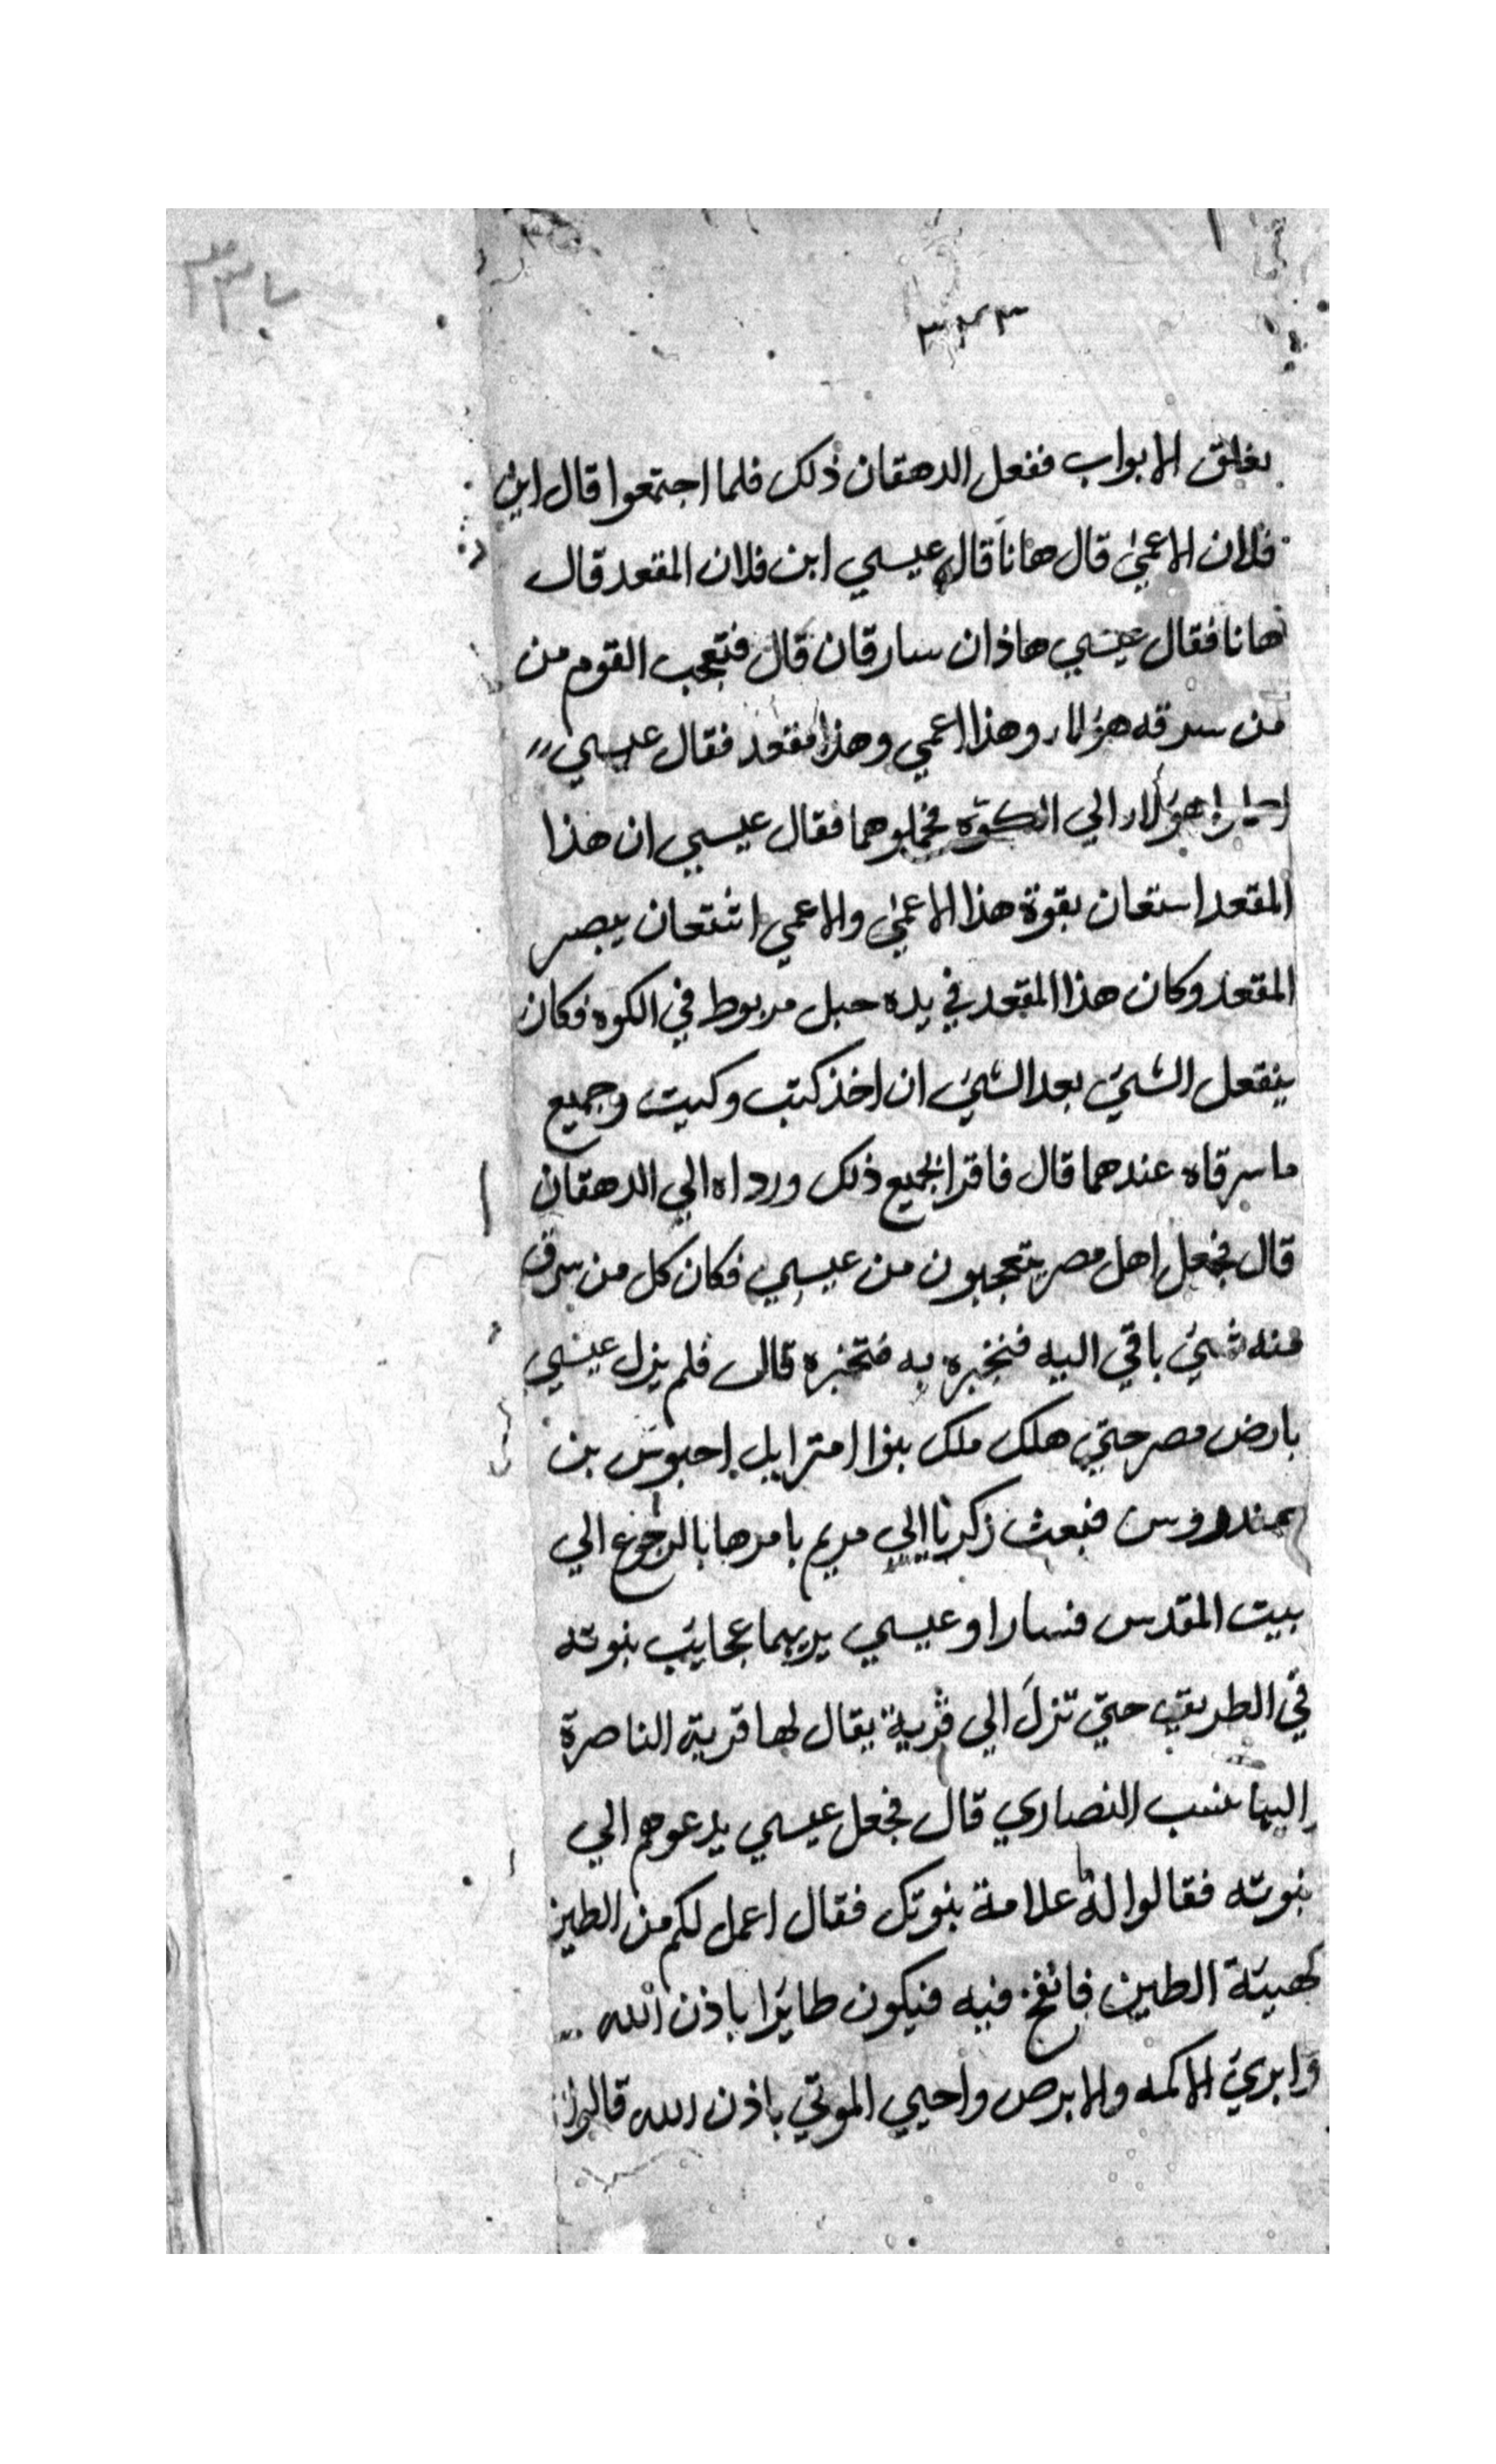 ٣٣٣
بغلق الابواب ففعل الدهقان ذلك فلما اجتمعوا قال اين
فلان الاعمي قال هانا قال عيسي ابن فلان المقعد قال
هانا فقال عيسي هاذان سارقان قال فتعجب القوم من
من سرقه هؤلاء وهذا اعمي وهذا مقعد فقال عيسي
هؤلاء الي الكوة فحملوهما فقال عيسي ان هذا
المقعد استعان بقوة هذا الاعمي والاعمي استعان ببصر
المقعد وكان هذا المقعد في يده حبل مربوط في الكوه فكان
ينفعل الشيء بعد الشيء ان اخذ كتب وكيت وجميع
ما سرقاه عندهما قال فاقرا بجميع ذلك ورداه الي الدهقان
قال فجعل اهل مصر يتعجبون من عيسي فكان كل من سرق
منه شيء ياتي اليه فنخبره به فتخبره قال فلم يزل عيسي
بارض مصر حتي هلك ملك بنوا امترايل احبوس بن
فبعث زكريا الي مريم يامرها بالرجوع الي
بيت المقدس فسارا وعيسي يريهما عجايب بنوته
في الطريق حتي نزل الي قرية يقال لها قرية الناصرة
اليها ننسب النصاري قال فجعل عيسي يدعوهم الي
بنوته فقالوا له ما علامة بنوتك فقال اعمل لكم من الطين
كهيئة الطين فانفخ فيه فيكون طايرا باذن الله
وابريء الاكمه والابرص واحيي الموتي باذن الله قالوا